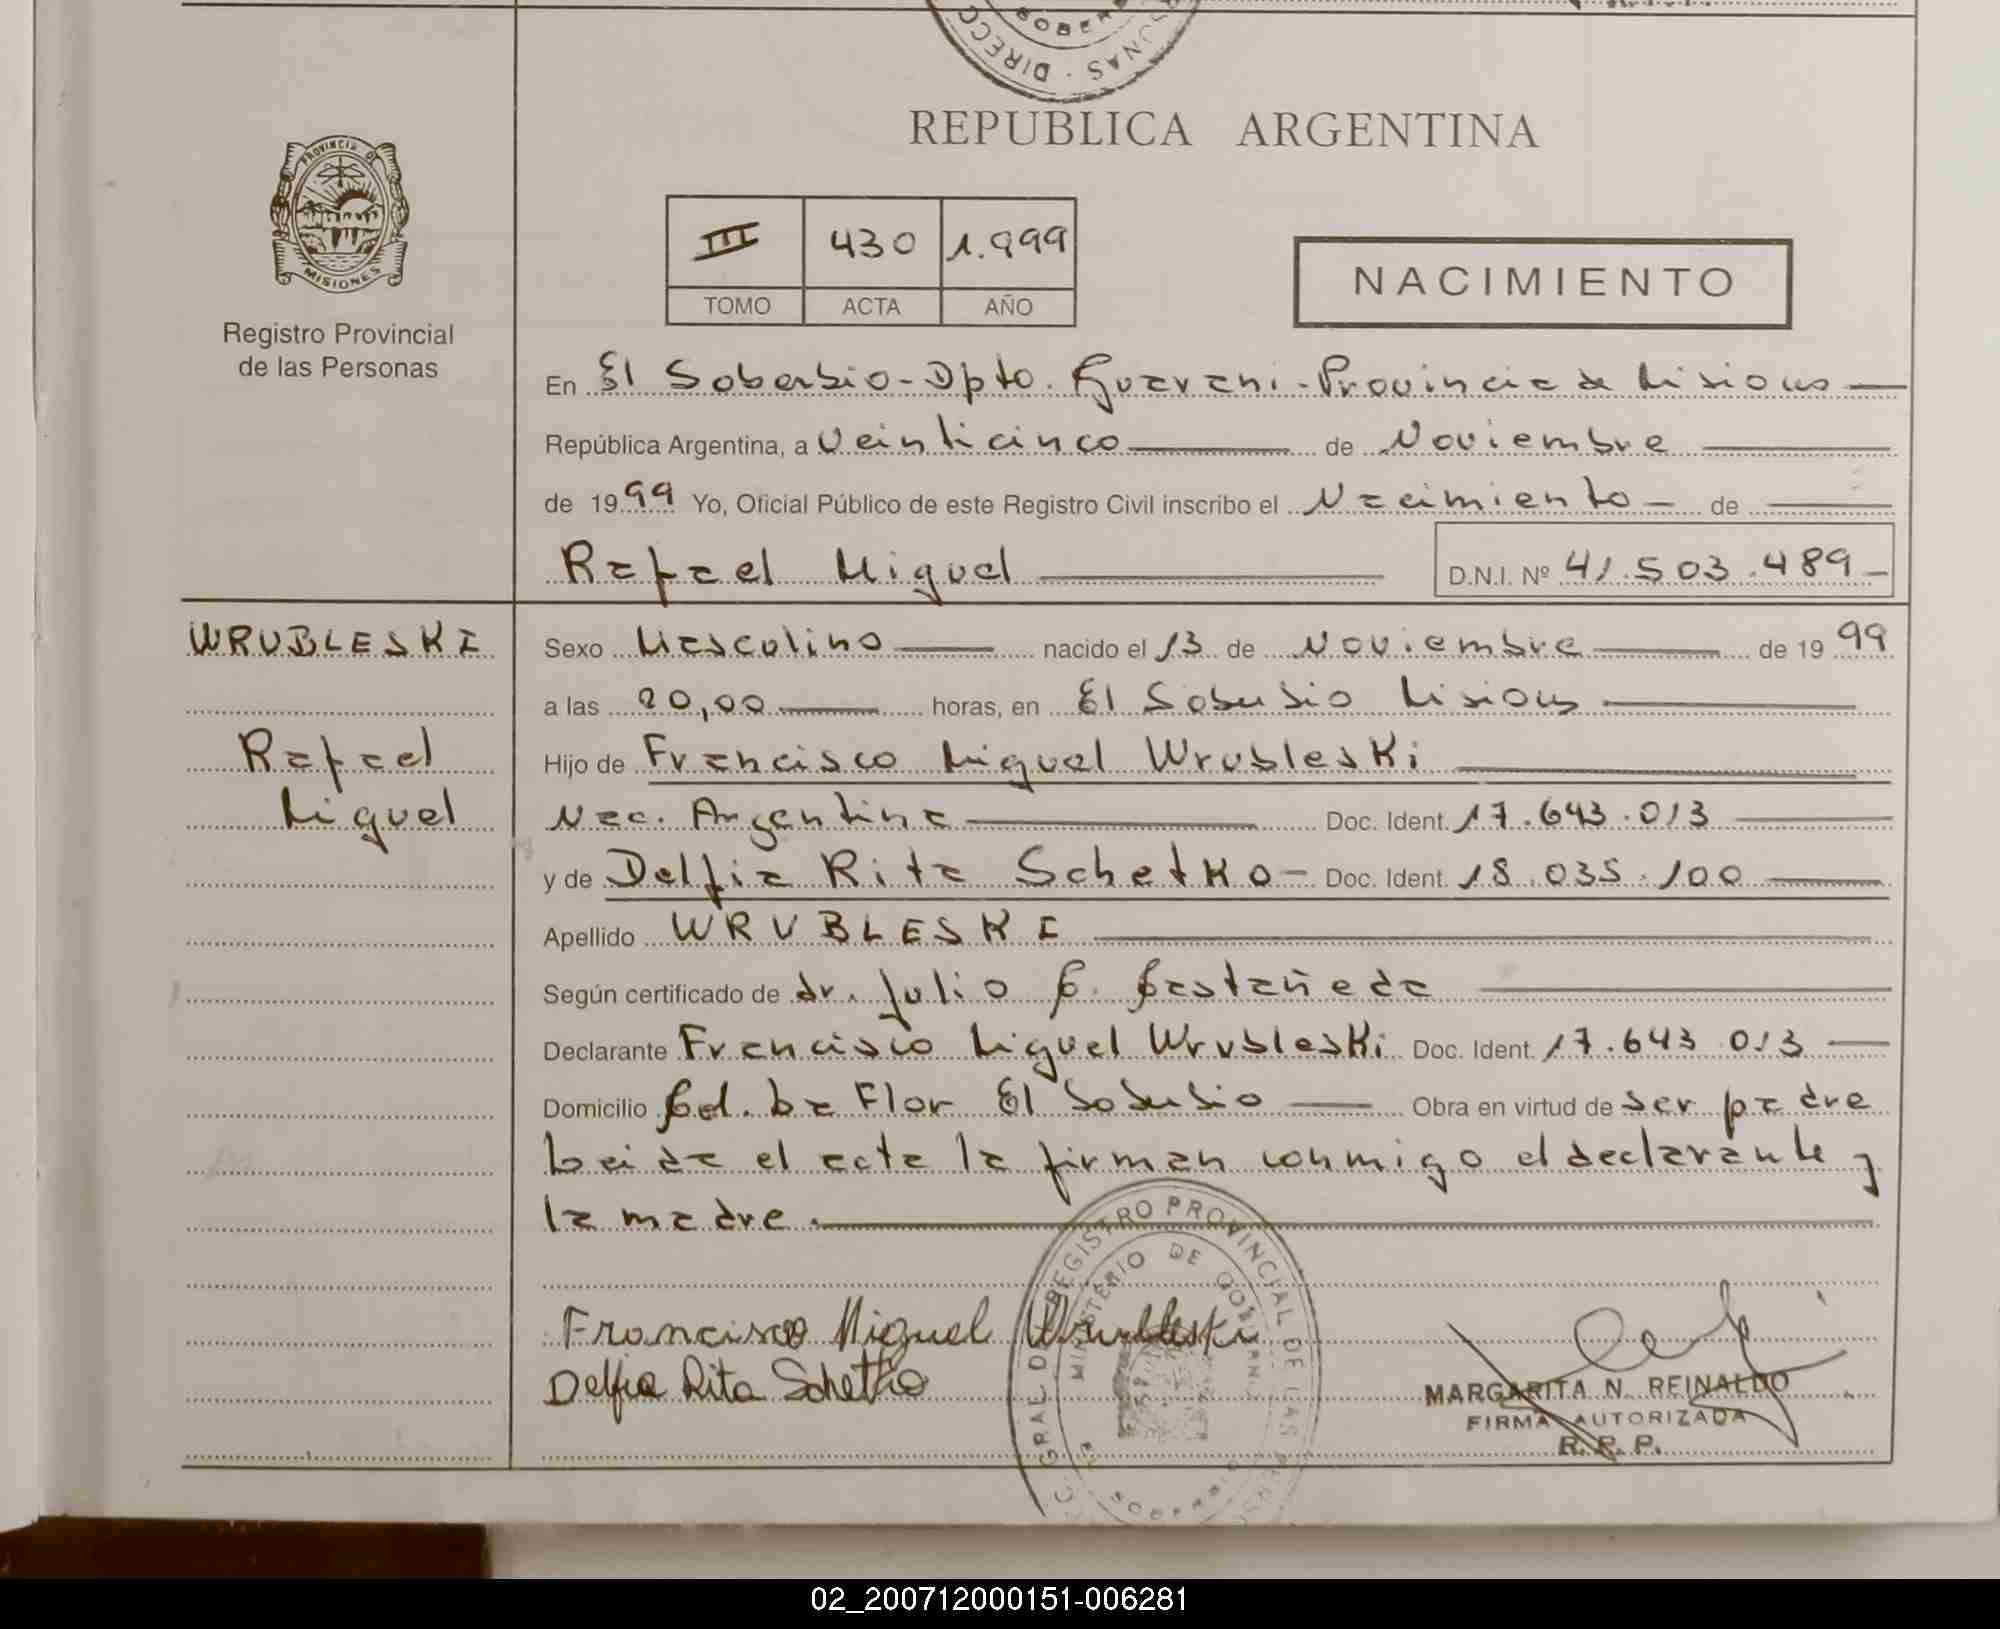 DIRECC
SONAS
SOBER
REPUBLICA ARGENTINA
PROVINCIA DE
MISIONES
Registro Provincial
de las Personas
III 430 1.999
TOMO ACTA AÑO
NACIMIENTO
En El Soberbio - Dpto. Guarani - Provincia de Misiones
República Argentina, a Veinticinco de Noviembre
de 1999 Yo, Oficial Público de este Registro Civil inscribo el Nacimiento de
Rafael Miguel D.N.I. Nº 41.503.489
WRUBLESKI
Rafael
Miguel
Sexo Masculino nacido el 13 de Noviembre de 1999
a las 20,00 horas, en El Soberbio Misiones
Hijo de Francisco Miguel Wrubleski
Nac. Argentina Doc. Ident. 17.643.013
y de Delfia Rita Schetko - Doc. Ident. 18.035.100
Apellido WRUBLESKI
Según certificado de dr. Julio C. Castañeda
Declarante Francisco Miguel Wrubleski Doc. Ident. 17.643.013
Domicilio Col. La Flor El Soberbio Obra en virtud de ser padre
Leida el acta la firman conmigo el declarante y
la madre.
REGISTRO PROVINCIAL DE LAS
MINISTERIO DE
SOBERBIO
Francisco Miguel Wrubleski
Delfia Rita Schetko
MARGARITA N. REINALDO
FIRMA AUTORIZADA
R. P. P.
02_200712000151-006281